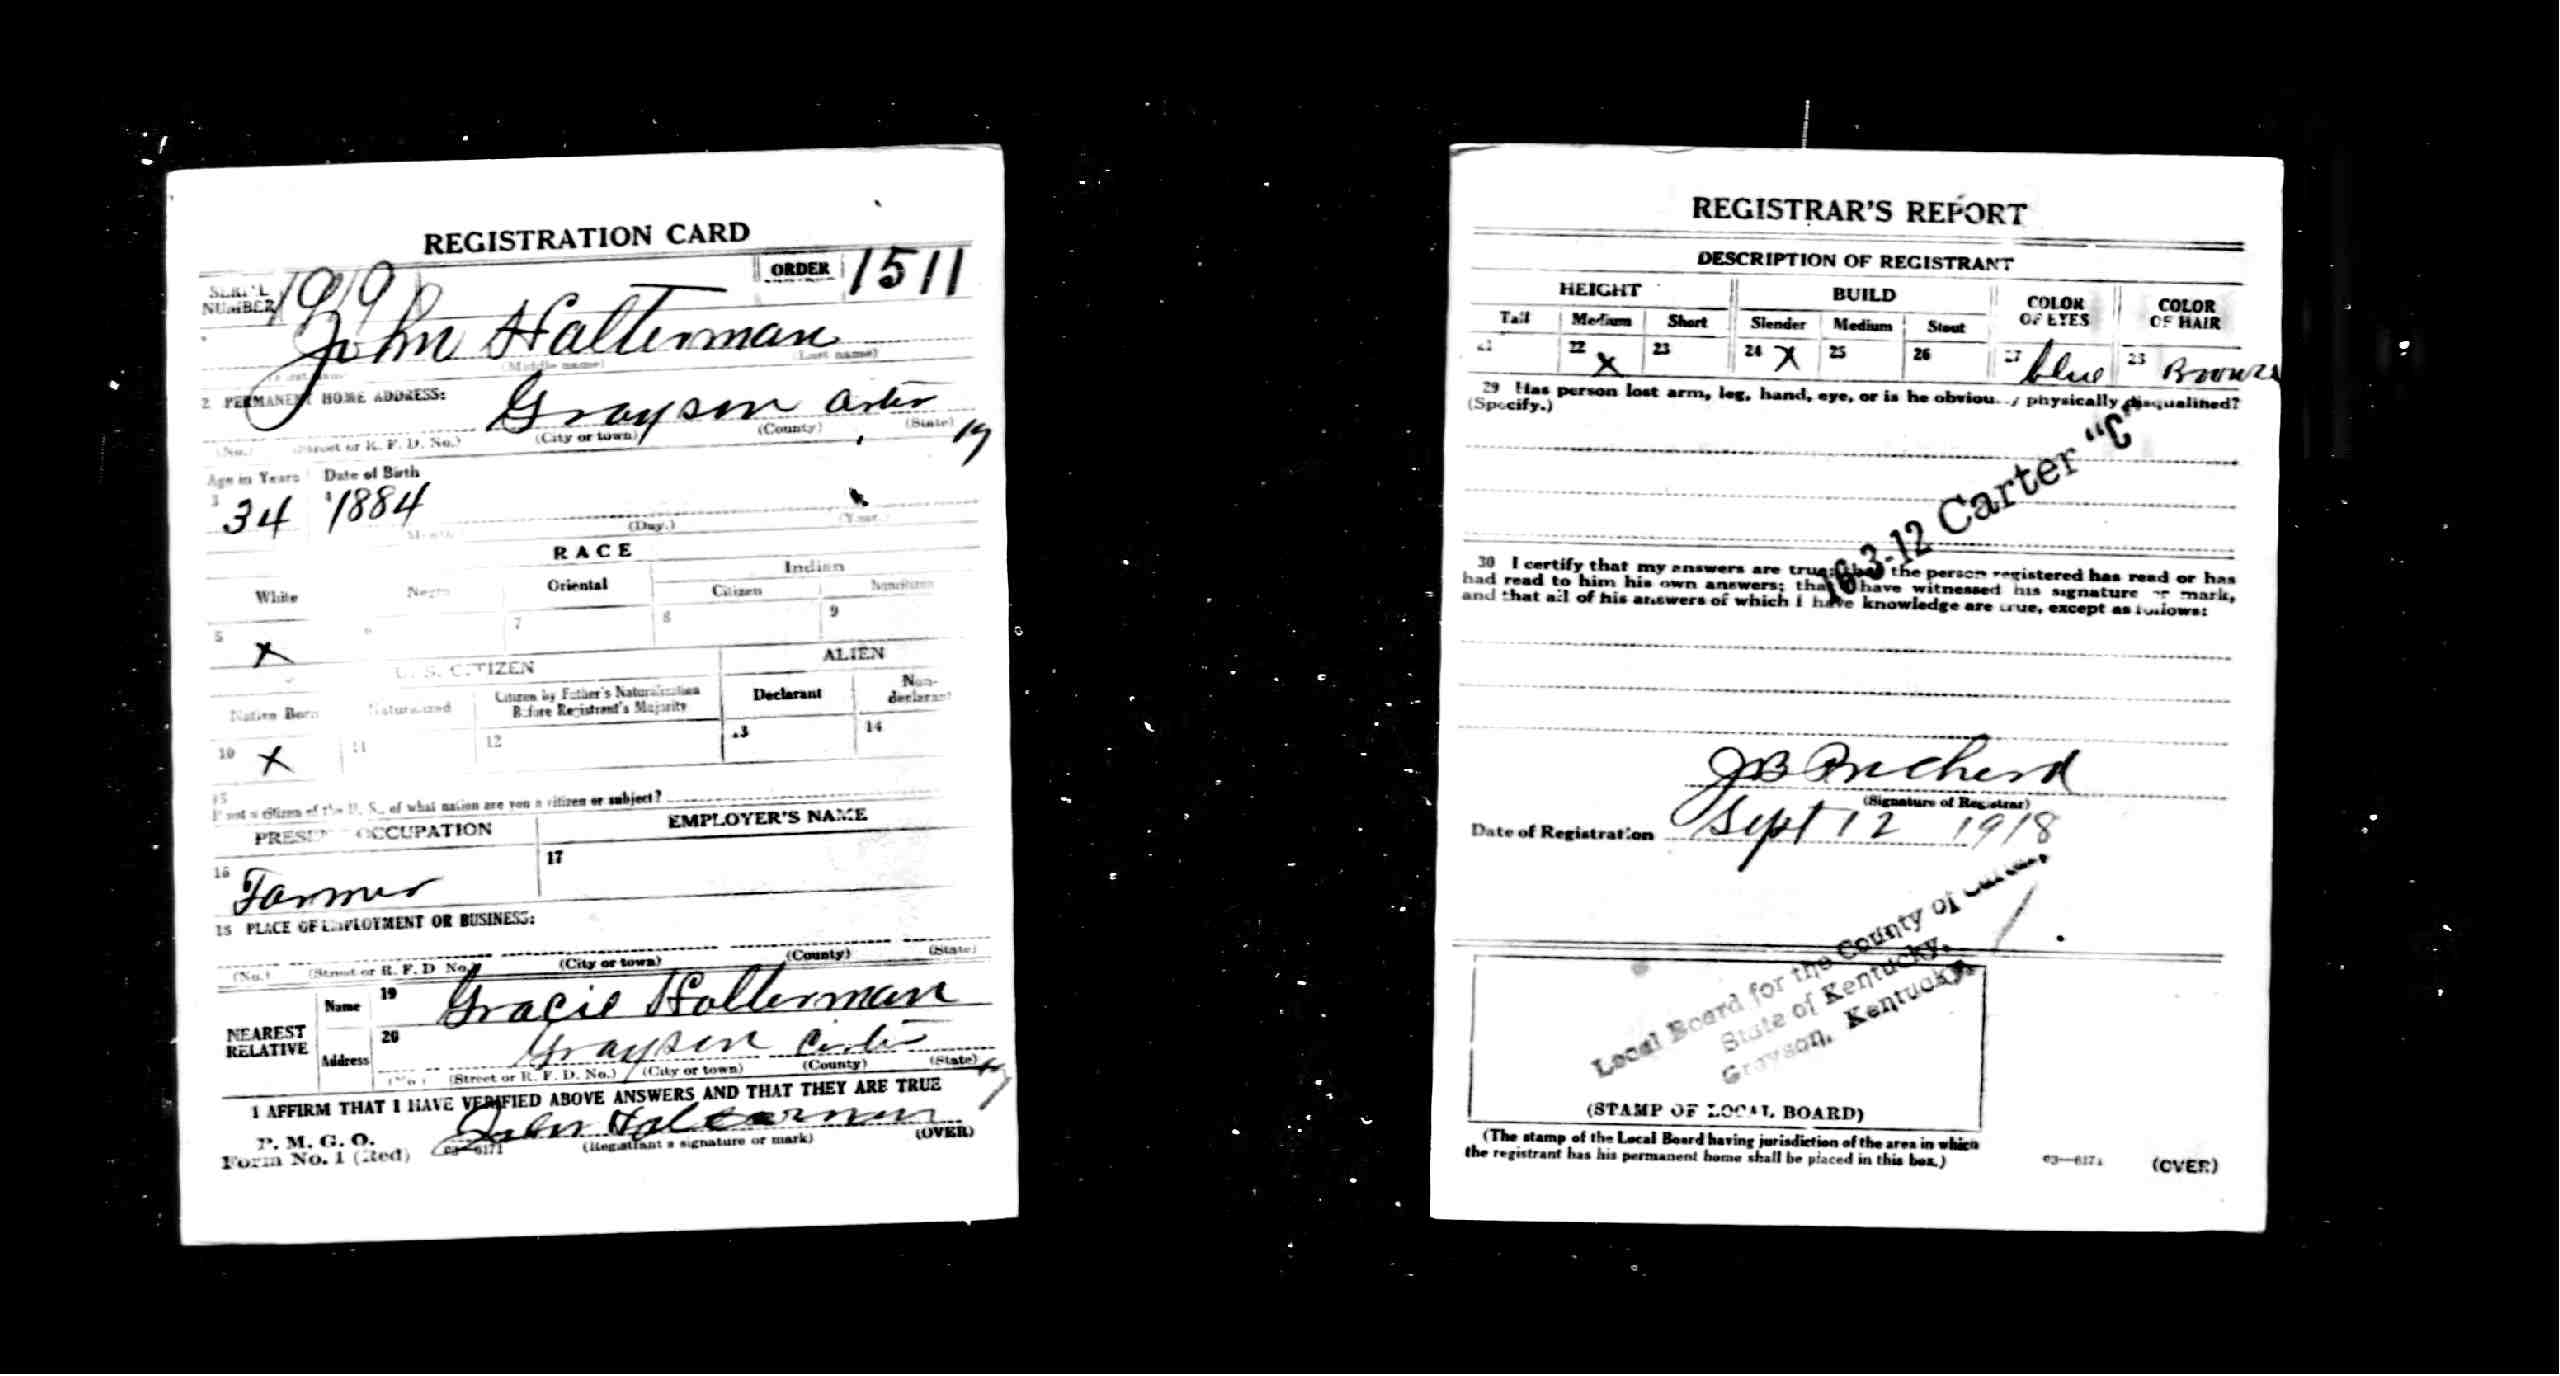 REGISTRATION CARD
SERIAL NUMBER 1919 ORDER 1511
John Halterman
(Middle name) (Last name)
2 PERMANENT HOME ADDRESS:
Grayson arter
(No.) (Street or R. F. D. No.) (City or town) (County) (State)
Age in Years Date of Birth
3 34 4 1884
(Day.) (Year.)
RACE
White Negro Oriental Indian
Citizen Noncitizen
5 X 6 7 8 9
U. S. CITIZEN ALIEN
Native Born Naturalized Citizen by Father's Naturalization Before Registrant's Majority Declarant Non-declarant
10 X 11 12 13 14
15
If not a citizen of the U. S., of what nation are you a citizen or subject?
PRESENT OCCUPATION EMPLOYER'S NAME
16 Farmer 17
18 PLACE OF EMPLOYMENT OR BUSINESS:
(No.) (Street or R. F. D No.) (City or town) (County) (State)
NEAREST RELATIVE
Name 19 Gracie Halterman
Address 20 Grayson Carter
(No.) (Street or R. F. D. No.) (City or town) (County) (State)
I AFFIRM THAT I HAVE VERIFIED ABOVE ANSWERS AND THAT THEY ARE TRUE
P. M. G. O.
Form No. 1 (Red) 03—6171 John Halterman
(Registrant's signature or mark) (OVER)
REGISTRAR'S REPORT
DESCRIPTION OF REGISTRANT
HEIGHT BUILD COLOR OF EYES COLOR OF HAIR
Tall Medium Short Slender Medium Stout
21 22 X 23 24 X 25 26 27 blue 28
29 Has person lost arm, leg, hand, eye, or is he obviously physically disqualified?
(Specify.)
16-3-12 Carter "C"
30 I certify that my answers are true; that the person registered has read or has
had read to him his own answers; that I have witnessed his signature or mark,
and that all of his answers of which I have knowledge are true, except as follows:
J B Prichard
(Signature of Registrar)
Date of Registration Sept 12 1918
Local Board for the County of Carter,
State of Kentucky,
Grayson, Kentucky,
(STAMP OF LOCAL BOARD)
(The stamp of the Local Board having jurisdiction of the area in which
the registrant has his permanent home shall be placed in this box.)
03—6171 (OVER)